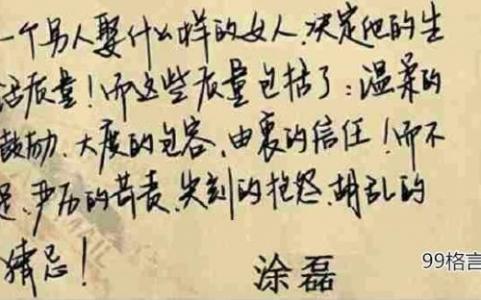 一个男人娶什么样的女人，决定他的生
活质量！而这些质量包括了：温柔的
鼓励、大度的包容、由衷的信任！而不
是，严厉的苛责、尖刻的抱怨、胡乱的
猜忌！
涂磊
99格言